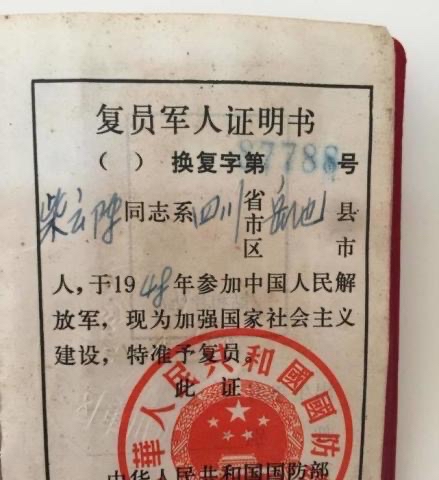 复员军人证明书
（ ）换复字第87788号
柴云陞同志系四川省市区岳池县市
人，于1948年参加中国人民解
放军，现为加强国家社会主义
建设，特准予复员。
此证
華人民共和國國防
中华人民共和国国防部